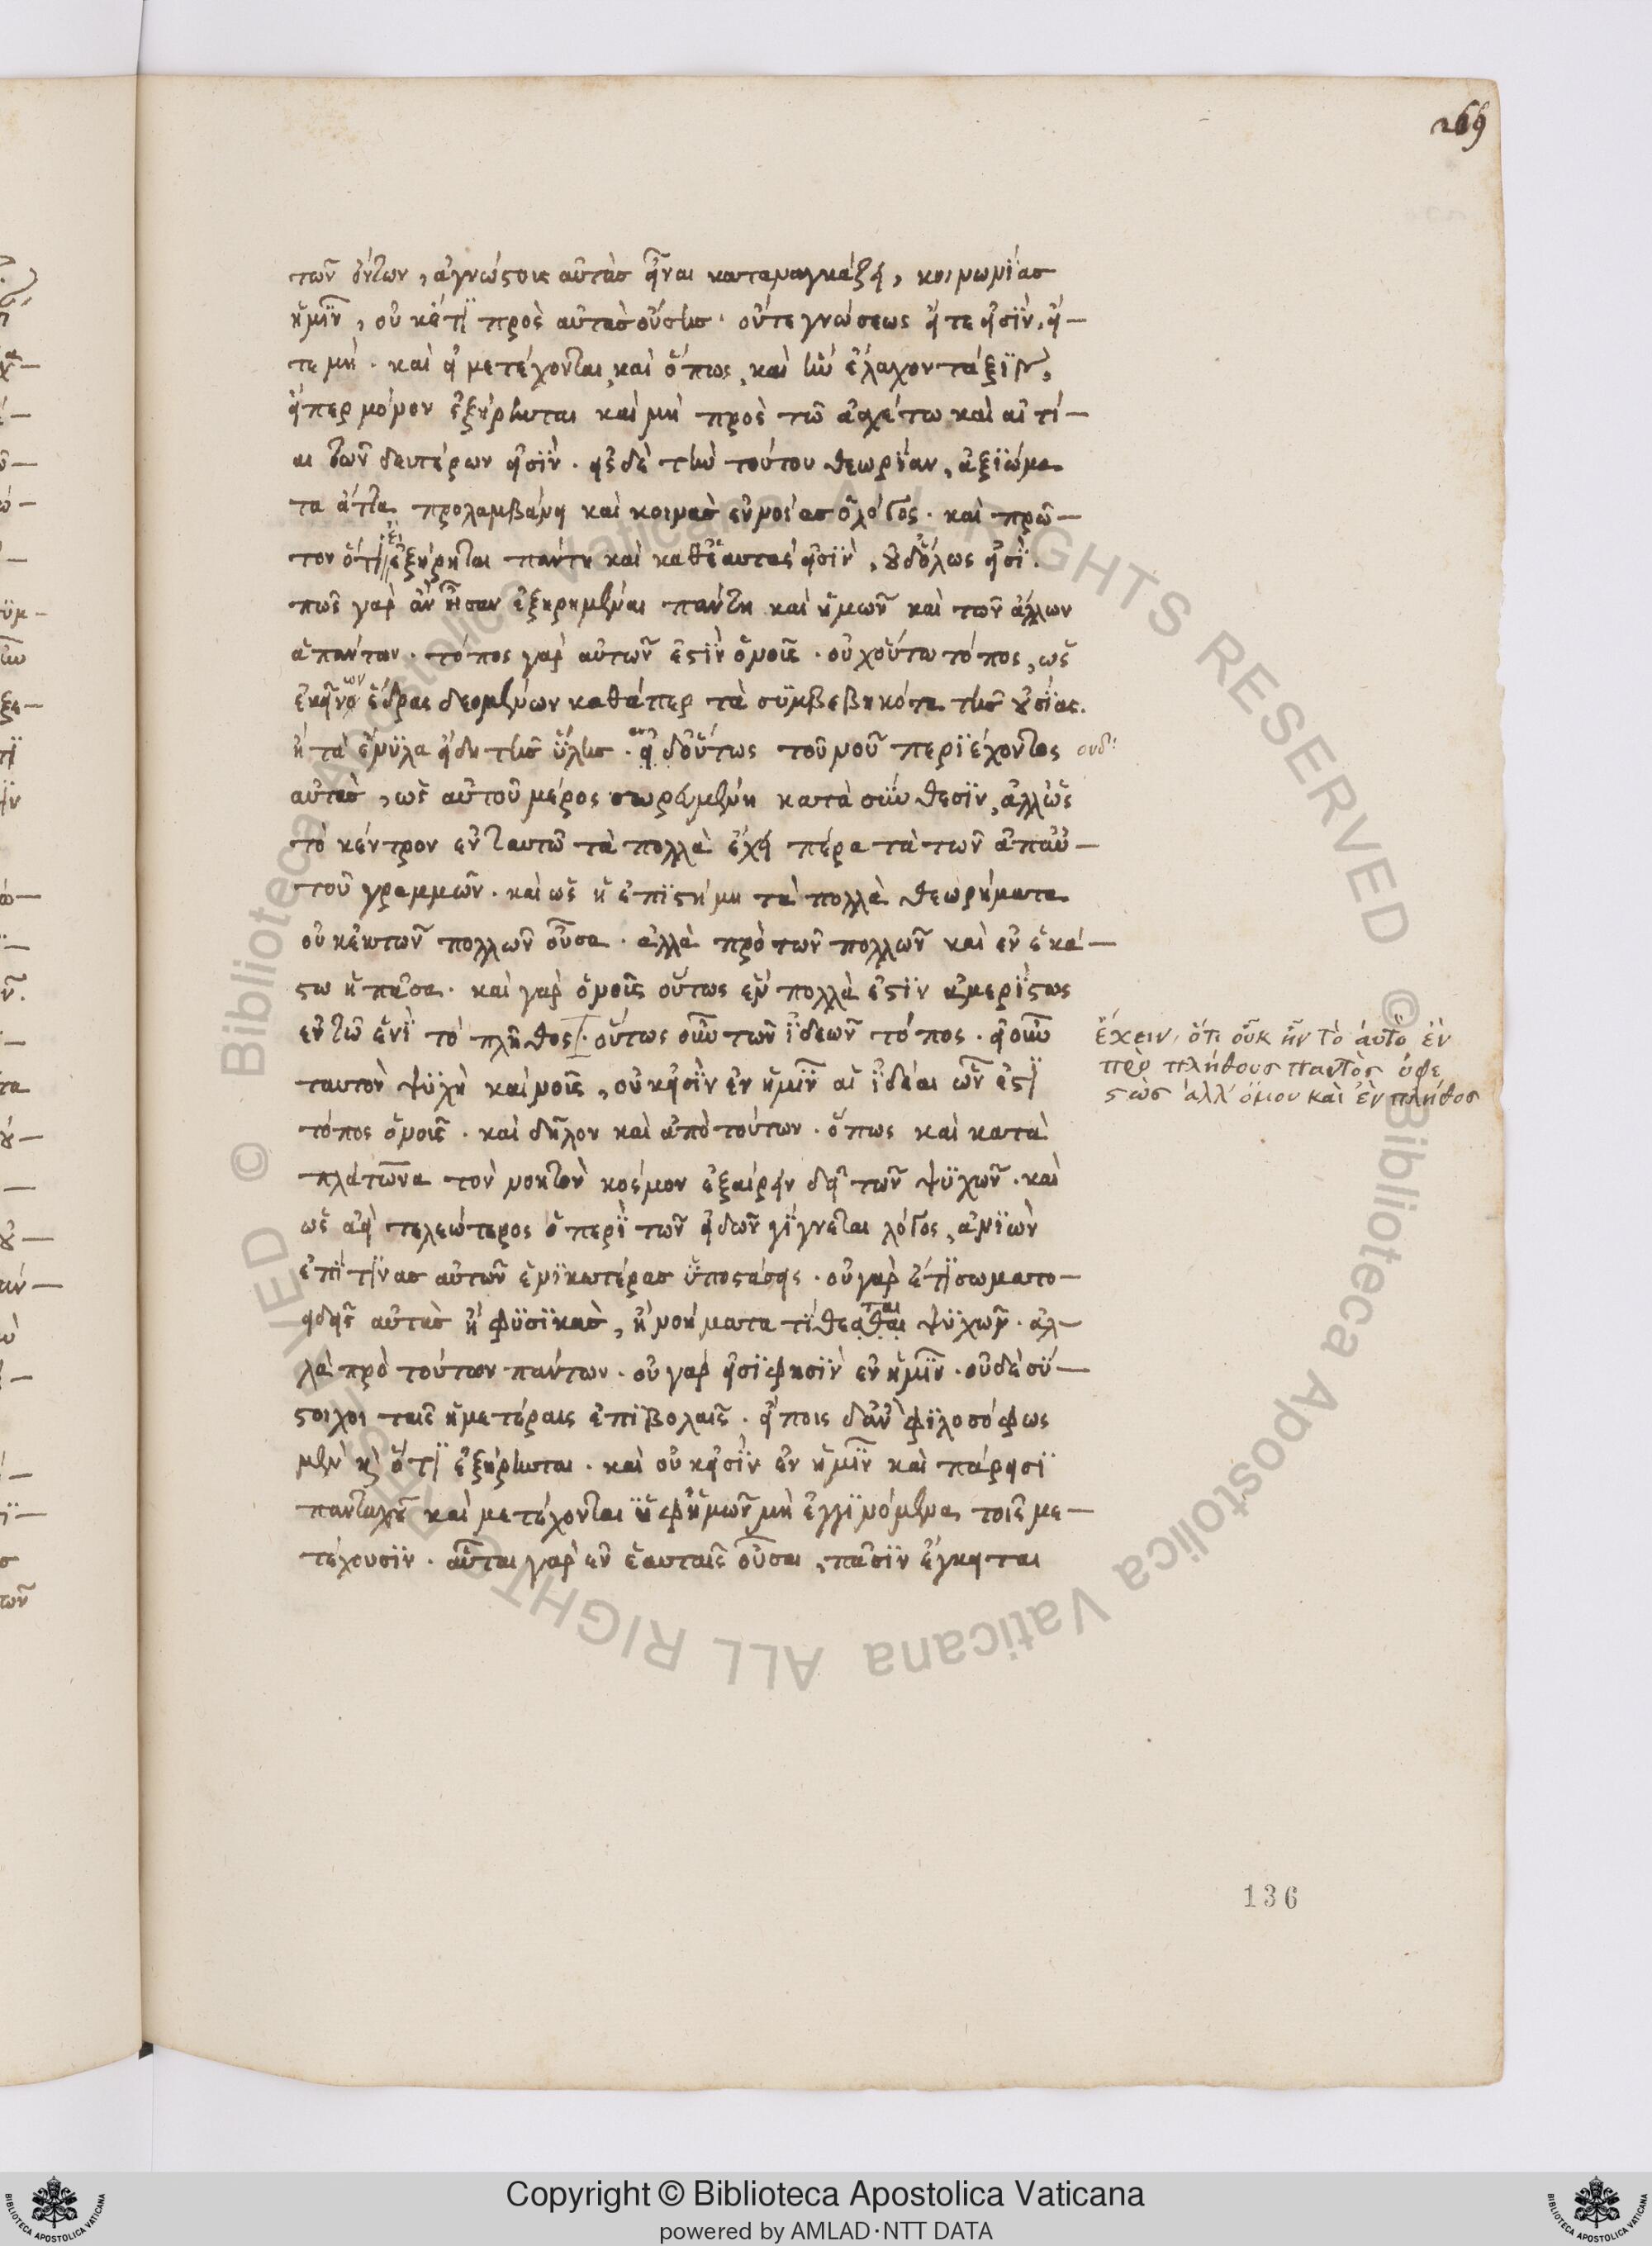 269
των ὄντων, ἀγνώστους αὐτὰς εἶναι καταναγκάζει, κοινωνίας
ἡμῖν, οὐκέτι πρὸς αὐτὰς οὔσης. οὔτε γνώσεως εἴτε εἰσὶν, εἴ-
τε μή. καὶ εἰ μετέχονται, καὶ ὅπως, καὶ ἣν ἔλαχον τάξιν,
εἴπερ μόνον ἐξήρηνται καὶ μὴ πρὸς τῶ ἀσχέτω καὶ αἰτί-
αι τῶν δευτέρων εἰσὶν. εἰς δὲ τὴν τούτου θεωρίαν, ἀξιώμα
τα ἄττα προλαμβάνει καὶ κοινὰς ἐννοίας ὁ λόγος. καὶ πρῶ-
τον ὅτι ἐξήρηται πάντη καὶ καθ' ἑαυτάς εἰσιν, οὐδ' ὅλως εἰσὶ.
πῶς γὰρ ἂν ἦσαν ἐξηρημέναι πάντη καὶ ἡμῶν καὶ τῶν ἄλλων
ἁπάντων. τόπος γὰρ αὐτῶν ἐστὶν ὁ νοῦς. οὐχ οὕτω τόπος, ὡς
ἐκείνων ἕδρας δεομένων καθάπερ τὰ συμβεβηκότα τῆς οὐσίας.
ἢ τὰ ἔνυλα εἴδη τῆς ὕλης. εἰ δ' οὕτως τοῦ νοῦ περιέχοντος
ουδ'
αὐτὰς, ὡς αὐτοῦ μέρος σωρευμένη κατὰ σύνθεσιν, ἀλλ' ὡς
τὸ κέντρον ἐν ταυτῶ τὰ πολλὰ ἔχει πέρατα τῶν ἀπ' αὐ-
τοῦ γραμμῶν. καὶ ὡς ἡ ἐπιστήμη τὰ πολλὰ θεωρήματα
οὐκ ἐκ τῶν πολλῶν οὖσα. ἀλλὰ πρὸ τῶν πολλῶν καὶ ἐν ἑκά-
στω ἡ πᾶσα. καὶ γὰρ ὁ νοῦς οὕτως ἓν πολλὰ ἐστὶν ἀμερίστως
ἐν τῶ ἑνὶ τὸ πλῆθος. οὕτως οὖν τῶν ἰδεῶν τόπος. εἰ οὖν
ἔχειν, ὅτι οὖκ ἦν τὸ αὐτὸ ἓν
πρὸ πλήθους παντὸς ὑφε
στὼς ἀλλ' ὅμιον καὶ ἓν πλῆθος
ταυτὸν ψυχὴ καὶ νοῦς, οὐκ εἰσὶν ἐν ἡμῖν αἱ ἰδέαι ὧν ἐστι
τόπος ὁ νοῦς. καὶ δῆλον καὶ ἀπὸ τούτων. ὅπως καὶ κατὰ
πλάτωνα τὸν νοητὸν κόσμον ἐξαίρειν δεῖ τῶν ψυχῶν. καὶ
ὡς ἀεὶ τελεώτερος ὁ περὶ τῶν εἰδῶν γίγνεται λόγος, ἀνιὼν
ἐπί τινας αὐτῶν ἑνικωτέρας ὑποστάσεις. οὐ γὰρ ἔτι σωματο-
ειδεῖς αὐτὰς ἢ φυσικὰς, ἢ νοήματα τίθεσθαι ψυχῶν. ἀλ-
ται
λὰ πρὸ τούτων πάντων. οὐ γὰρ εἰσὶ φησὶν ἐν ἡμῖν. οὐδὲ σύ-
στοιχοι ταῖς ἡμετέραις ἐπιβολαῖς. εἴποις δ' ἂν φιλοσόφως
μὲν καὶ ὅτι ἐξήρηνται. καὶ οὐκ εἰσὶν ἐν ἡμῖν καὶ πάρεισι
πανταχοῦ καὶ μετέχονται ὑφ' ἡμῶν μὴ ἐγγινόμεναι τοῖς με-
τέχουσιν. αὗται γὰρ ἐν ἑαυταῖς οὖσαι, πᾶσιν ἔγκειται
136
Copyright © Biblioteca Apostolica Vaticana
powered by AMLAD·NTT DATA
© Biblioteca Apostolica Vaticana ALL RIGHTS RESERVED © Biblioteca Apostolica Vaticana ALL RIGHTS RESERVED